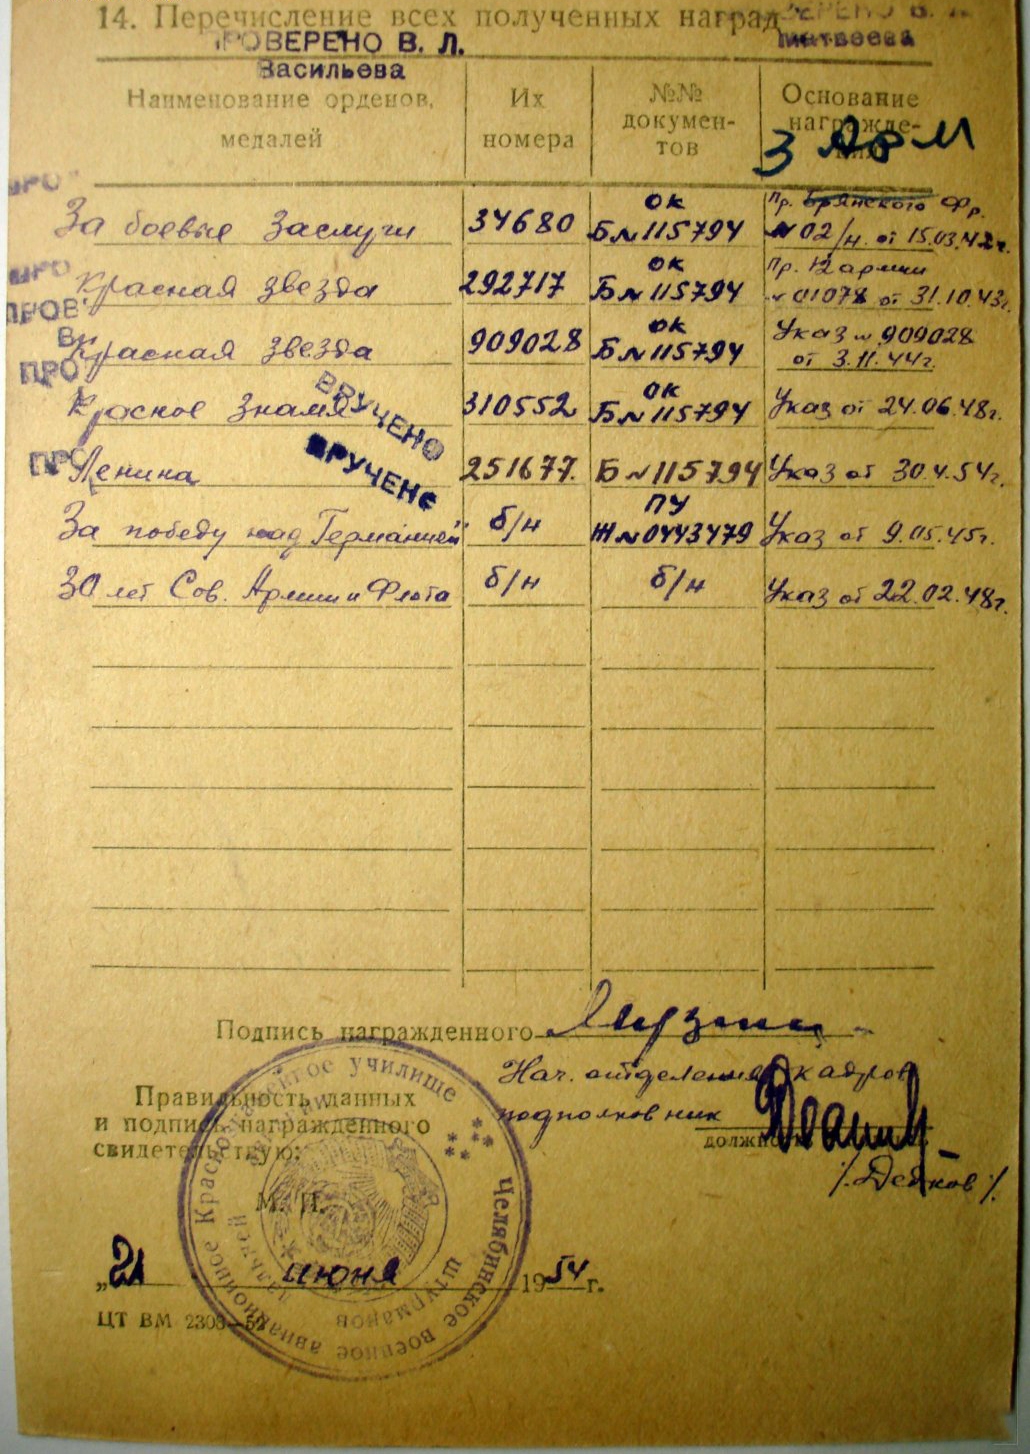 14. Перечисление всех полученных наград
ПРОВЕРЕНО В. Л.
Васильева
Матвеева
Наименование орденов, медалей
Их номера
№№ докумен-тов
Основание награжде-
3 Арм
За боевые заслуги 34680 ОК Б№115794 Пр. Брянского Фр. №02/н. от 15.03.42г.
Красная звезда 292717 ОК Б№115794 Пр. 12 армии №01078 от 31.10.43г.
Красная звезда 909028 ОК Б№115794 Указ № 909028 от 3.11.44г.
Красное Знамя 310552 ОК Б№115794 Указ от 24.06.48г.
Ленина 251677. Б№115794 Указ от 30.4.54г.
За победу над Германией б/н ПУ Ж№0443479 Указ от 9.05.45г.
30 лет Сов. Армии и Флота б/н б/н Указ от 22.02.48г.
ВРУЧЕНО
ВРУЧЕНО
Подпись награжденного
Нач. отделения кадров
подполковник
Правильность данных
и подпись награжденного
свидетельствую:
/Дедков/
М. П.
Челябинское военное авиационное Краснознамённое училище
штурманов
„21 июня 1954 г.
ЦТ ВМ